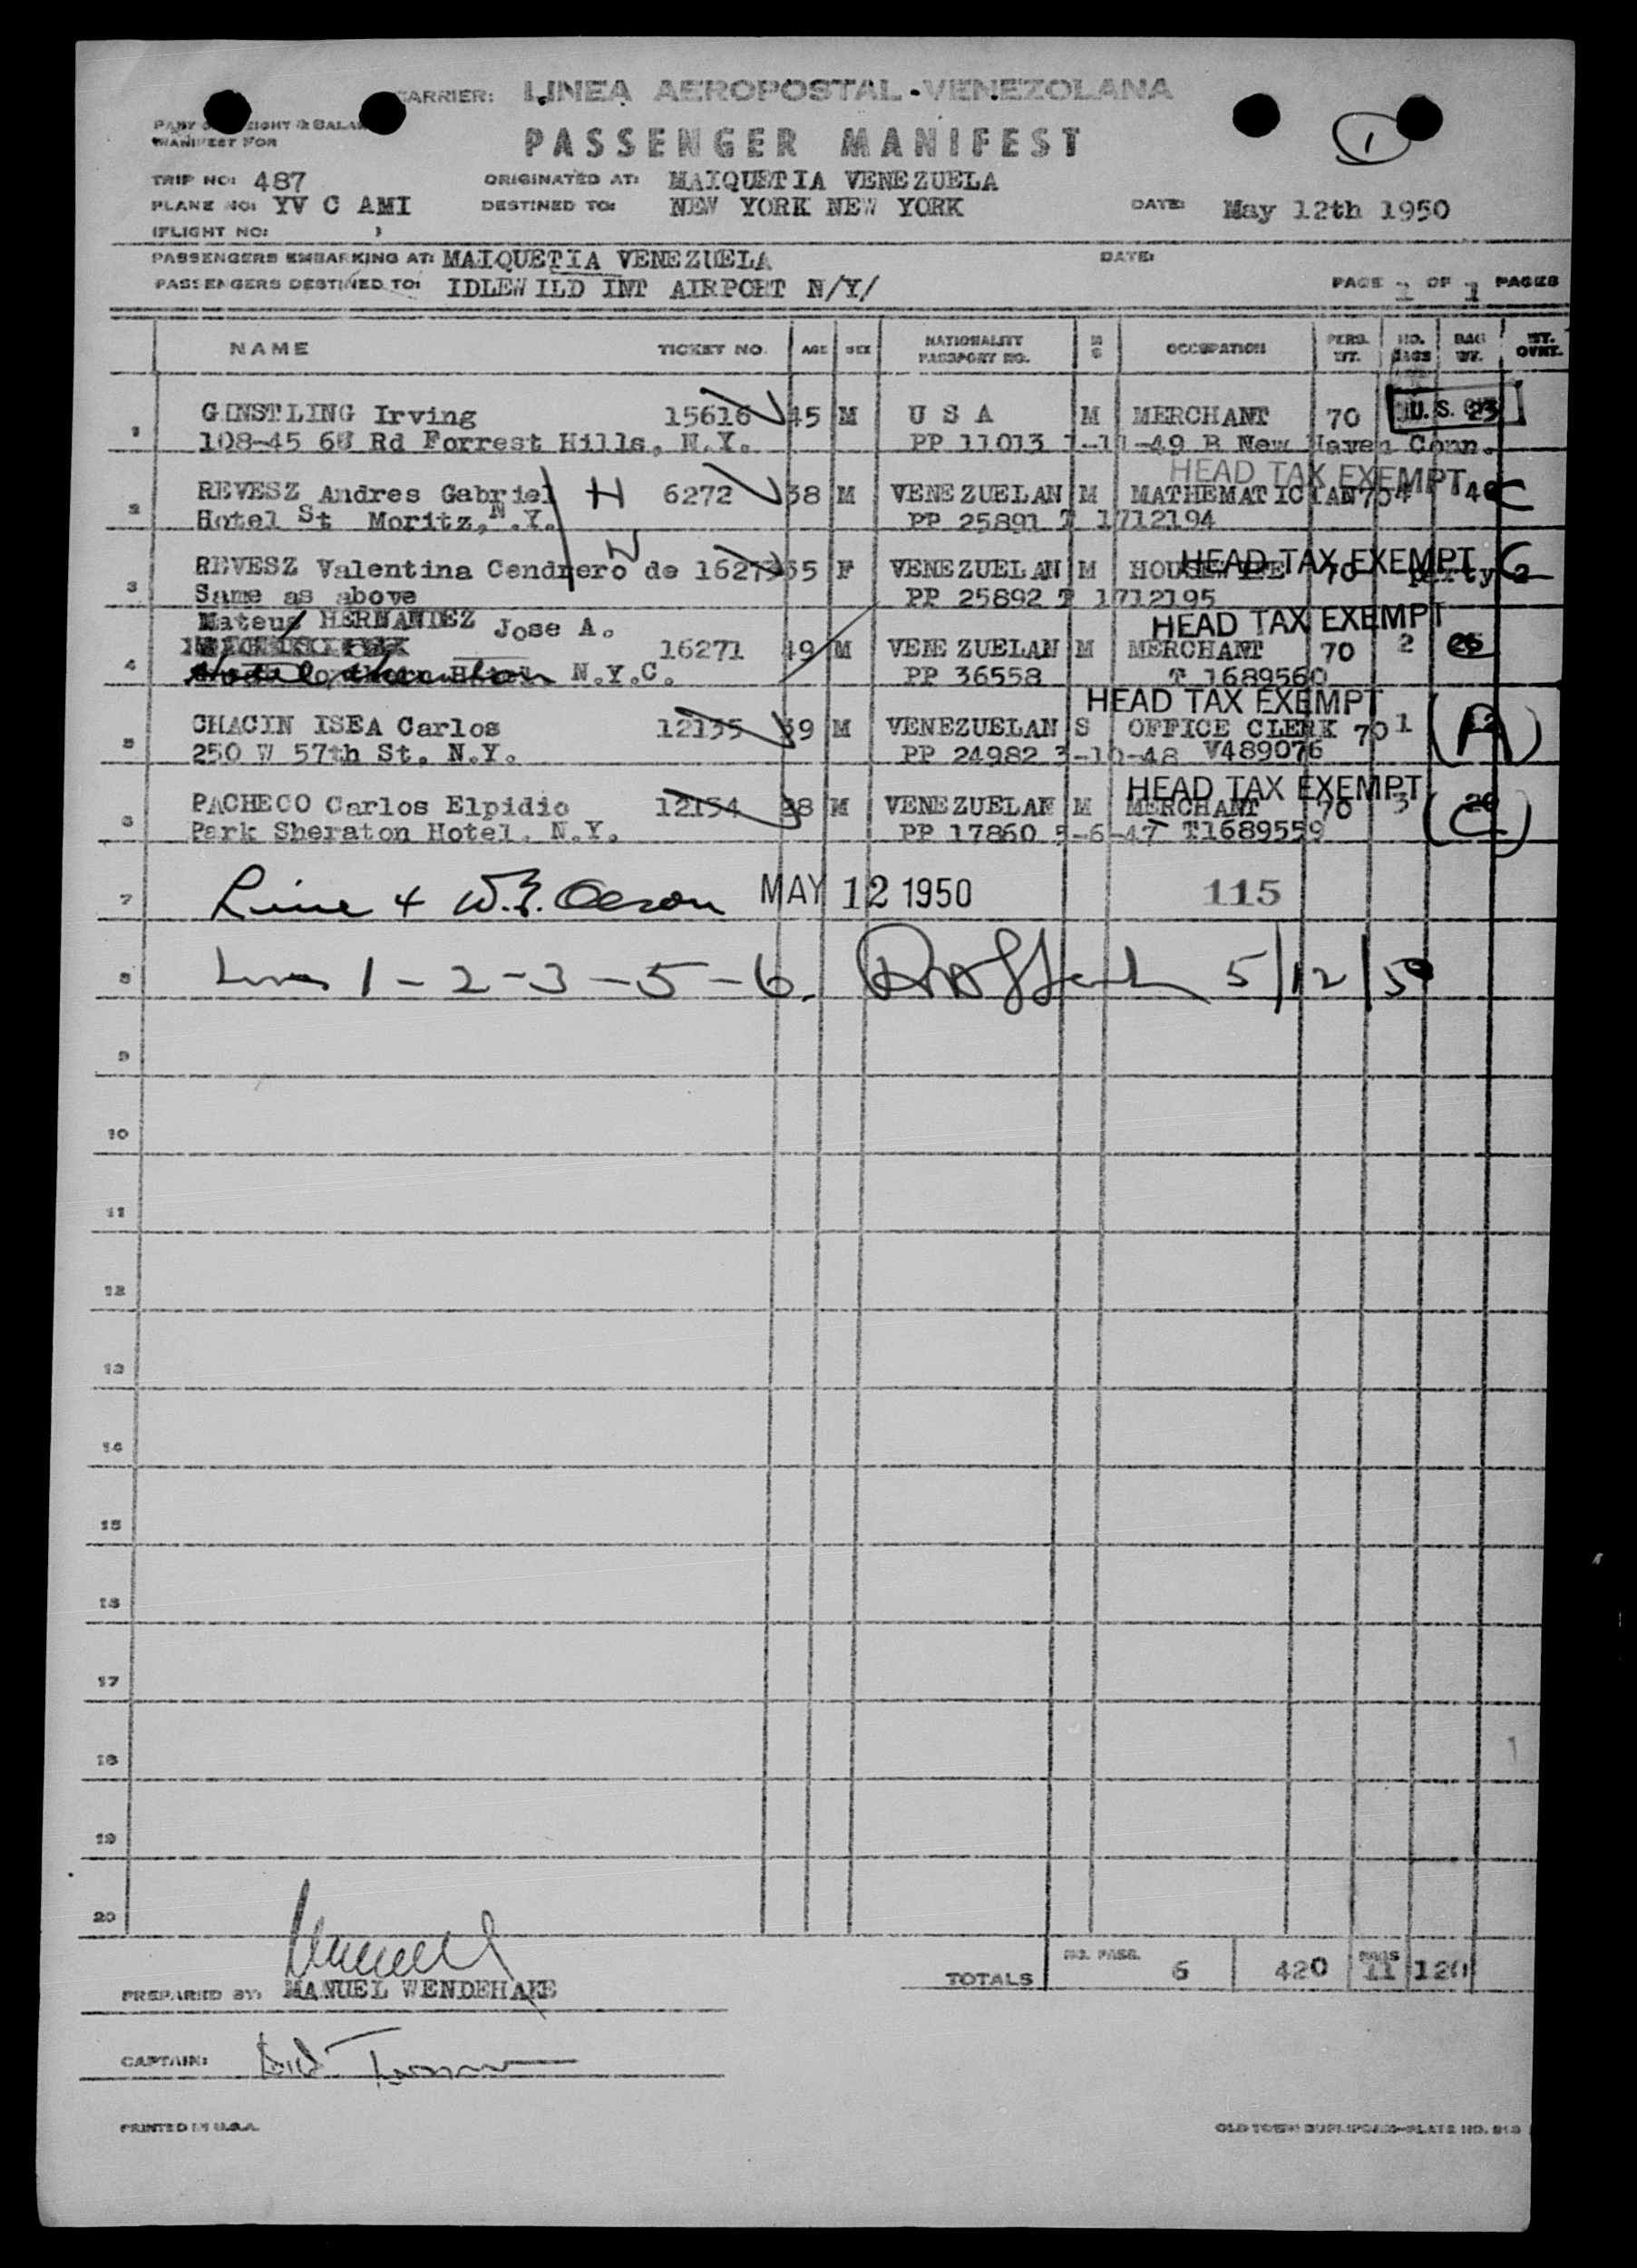 CARRIER: LINEA AEROPOSTAL-VENEZOLANA
MANIFEST FOR
PASSENGER MANIFEST
1
TRIP NO: 487 ORIGINATED AT: MAIQUETIA VENEZUELA
PLANE NO: YV C AMI DESTINED TO: NEW YORK NEW YORK DATE: May 12th 1950
(FLIGHT NO: )
PASSENGERS EMBARKING AT: MAIQUETIA VENEZUELA DATE:
PASSENGERS DESTINED TO: IDLEWILD INT AIRPORT N/Y/ PAGE 1 OF 1 PAGES
NAME TICKET NO. AGE SEX NATIONALITY PASSPORT NO. M S OCCUPATION PERS. WT. NO. BAGS BAG WT. WT. OVNT.
1 GINSTLING Irving 15616 45 M U S A M MERCHANT 70 U.S. 23
108-45 68 Rd Forrest Hills, N.Y. PP 11013 1-11-49 B New Haven Conn.
HEAD TAX EXEMPT
2 REVESZ Andres Gabriel H 6272 38 M VENEZUELAN M MATHEMATICIAN 70 4 40
Hotel St Moritz, N.Y. PP 25891 T 1712194
HEAD TAX EXEMPT
3 REVESZ Valentina Cendrero de W 16273 35 F VENEZUELAN M HOUSEWIFE 70 2
Same as above PP 25892 T 1712195
Mateus HERNANDEZ Jose A. HEAD TAX EXEMPT
4 16271 49 M VENEZUELAN M MERCHANT 70 2 25
N.Y.C. PP 36558 T 1689560
HEAD TAX EXEMPT
5 CHACIN ISEA Carlos 12135 39 M VENEZUELAN S OFFICE CLERK 70 1 (A)
250 W 57th St. N.Y. PP 24982 3-10-48 V489076
HEAD TAX EXEMPT
6 PACHECO Carlos Elpidio 12134 28 M VENEZUELAN M MERCHANT 70 3 20 (C)
Park Sheraton Hotel, N.Y. PP 17860 5-6-47 T1689559
7 Line 4 W.Z. MAY 12 1950 115
8 Lines 1-2-3-5-6. 5/12/50
9
10
11
12
13
14
15
16
17
18
19
20
TOTALS NO. PASS. 6 420 BAGS 11 120
PREPARED BY: MANUEL WENDEHAKE
CAPTAIN:
PRINTED IN U.S.A. OLD TOWN